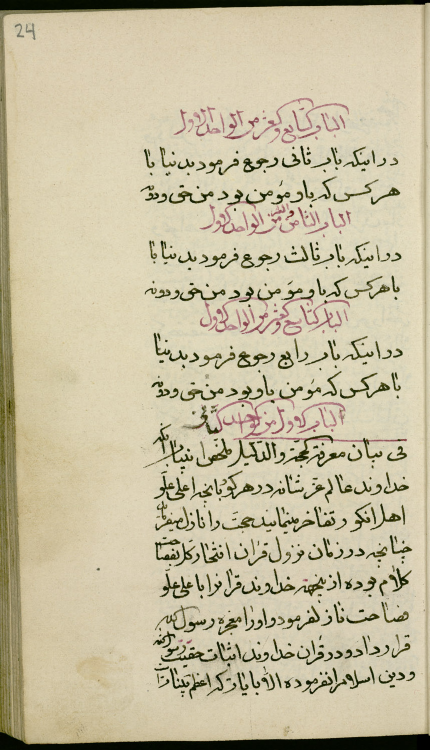 24
الباب السابع والعشر من الواحد الاول
در اینکه باب ثانی رجوع فرمود بدنیا با
هر کس که باو مؤمن بود من حق و دونه
الباب الثامن والعشر من الواحد الاول
در اینکه باب ثالث رجوع فرمود بدنیا با
با هر کس که باو مؤمن بود من حق و دونه
الباب التاسع والعشر من الواحد الاول
در اینکه باب رابع رجوع فرمود بدنیا
با هر کس که مؤمن باو بود من حق و دونه
الباب الاول من الواحد الثانی
فی بیان معرفة الحجة والدلیل ملخص این باب آنکه
خداوند عالم عز شانه در هر کور بانچه اعلی علو
اهل ان کور تفاخر مینمایند حجت را نازل میفرماید
چنانچه در زمان نزول قران افتخار کل بفصاحت
کلام بوده از این جهة خداوند قرانرا باعلی علو
فصاحت نازل فرمود و اورا معجزه رسول الله
قرار داد و در قران خداوند اثبات حقیت رسول الله
و دین اسلام را نفرموده الا بایات که اعظم بینات است